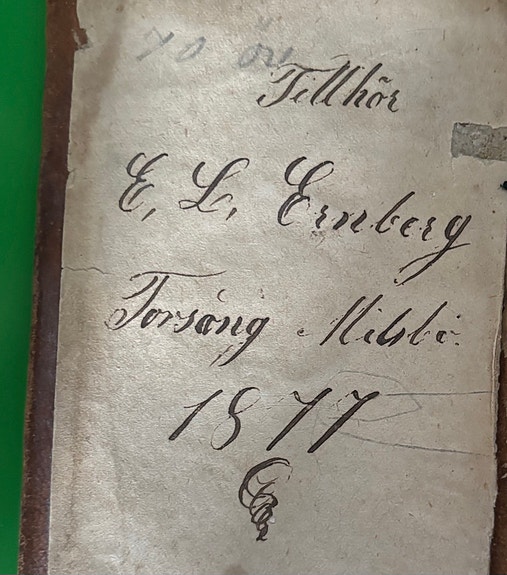 70 öre
Tillhör
E. L. Ernberg
Torsång Milsbo.
1877